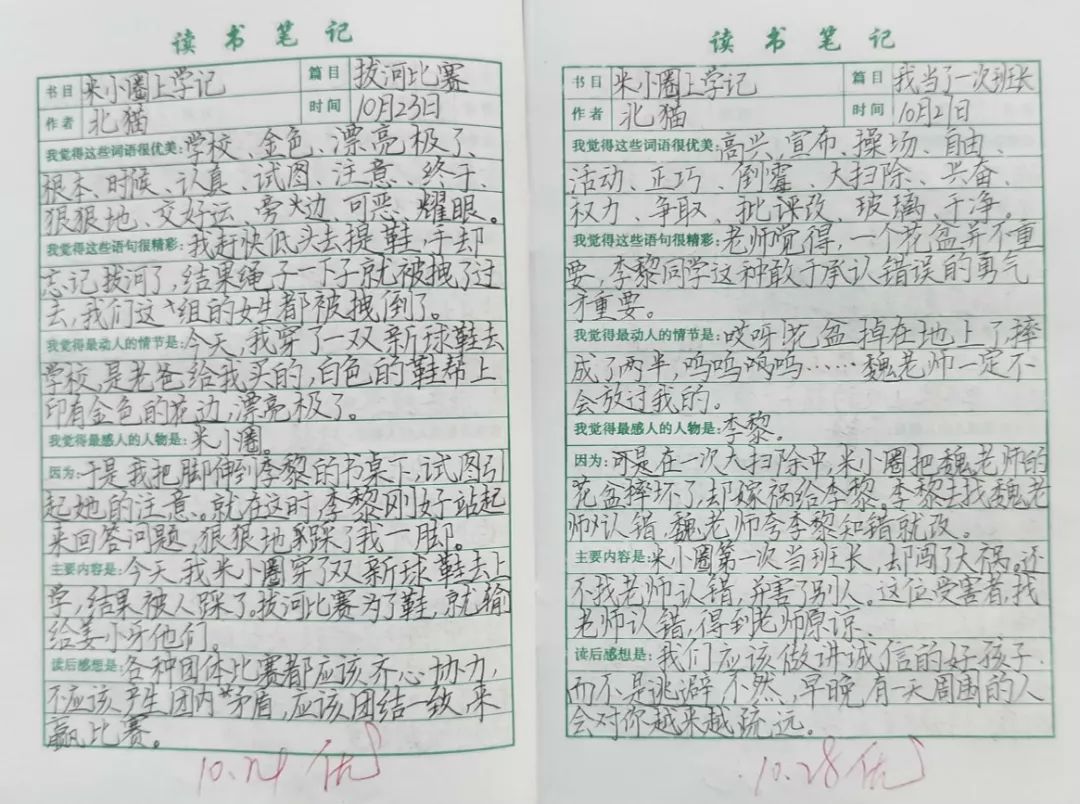 读书笔记
书目 米小圈上学记 篇目 拔河比赛
作者 北猫 时间 10月23日
我觉得这些词语很优美：学校、金色、漂亮极了、
根本、时候、认真、试图、注意、终于、
狠狠地、交好运、旁边、可恶、耀眼。
我觉得这些语句很精彩：我赶快低头去提鞋，手却
忘记拔河了，结果绳子一下子就被拽了过
去，我们这组的女生都被拽倒了。
我觉得最动人的情节是：今天，我穿了一双新球鞋去
学校，是老爸给我买的，白色的鞋帮上
印有金色的花边，漂亮极了。
我觉得最感人的人物是：米小圈。
因为：于是我把脚伸到李黎的书桌下，试图引
起她的注意。就在这时，李黎刚好站起
来回答问题，狠狠地踩了我一脚。
主要内容是：今天，我米小圈穿了双新球鞋去上
学，结果被人踩了，拔河比赛为了鞋，就输
给姜小牙他们。
读后感想是：各种团体比赛都应该齐心协力，
不应该产生团内矛盾，应该团结一致，来
赢比赛。
10.24 优
读书笔记
书目 米小圈上学记 篇目 我当了一次班长
作者 北猫 时间 10月21日
我觉得这些词语很优美：高兴，宣布、操场、自由、
活动、正巧、倒霉、大扫除、兴奋、
权力、争取、批评改、玻璃、干净。
我觉得这些语句很精彩：老师觉得，一个花盆并不重
要，李黎同学这种敢于承认错误的勇气
才重要。
我觉得最动人的情节是：哎呀！花盆掉在地上了摔
成了两半，呜呜呜呜……魏老师一定不
会放过我的。
我觉得最感人的人物是：李黎。
因为：可是在一次大扫除中，米小圈把魏老师的
花盆摔坏了，却嫁祸给李黎。李黎去找魏老
师认错，魏老师夸李黎知错就改。
主要内容是：米小圈第一次当班长，却闯了大祸。还
不找老师认错，并害了别人。这位受害者，找
老师认错，得到老师原谅.
读后感想是：我们应该做讲诚信的好孩子.
而不是逃避 不然，早晚有一天周围的人
会对你越来越疏远。
10.28 优